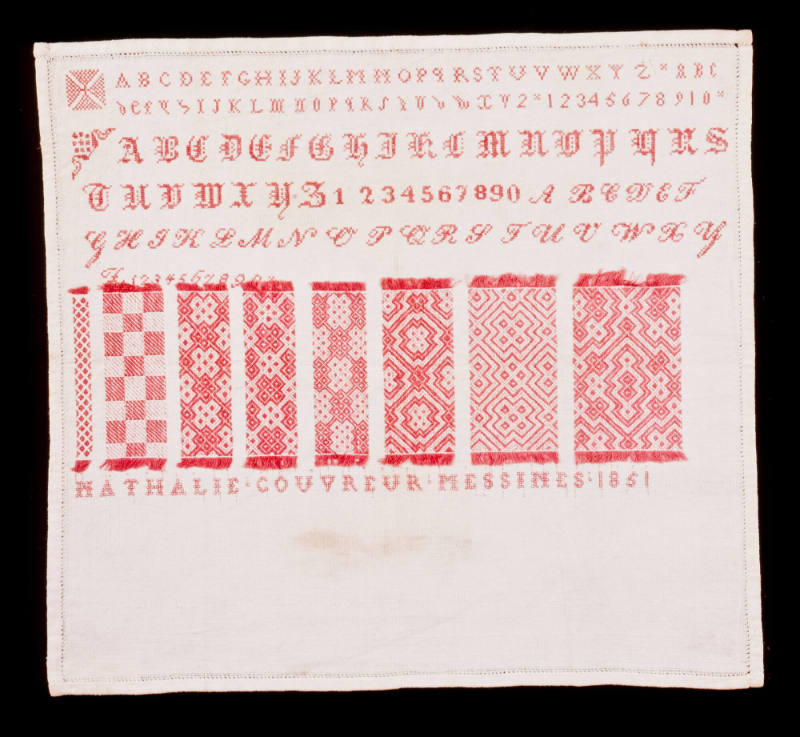 A B C D E F G H I J K L M N O P Q R S T U V W X Y Z * A B C
D E F G S I J K L M N O P Q R S T U V W X Y Z * 1 2 3 4 5 6 7 8 9 1 0 *
A B C D E F G H I K L M N O P Q R S
T U V W X Y Z 1 2 3 4 5 6 7 8 9 0 A B C D E F
G H I K L M N O P Q R S T U V W X Y
Z 1 2 3 4 5 6 7 8 9 0 *
NATHALIE · COUVREUR · MESSINES · 1851